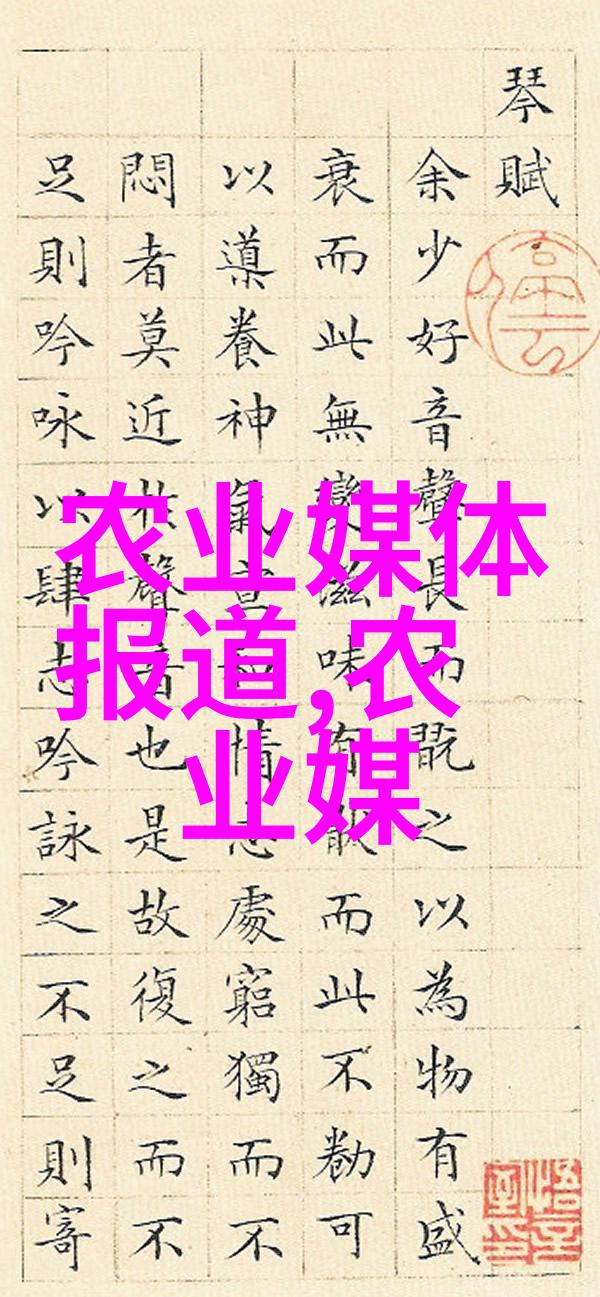 琴賦
余少好音聲長而翫之以為物有盛
衰而此無變滋味有猒而此不勌可
以導養神氣宣和情志處窮獨而不
悶者莫近於聲音也是故復之而不
足則吟咏以肆志吟詠之不足則寄
农业媒体
报道,农
业媒